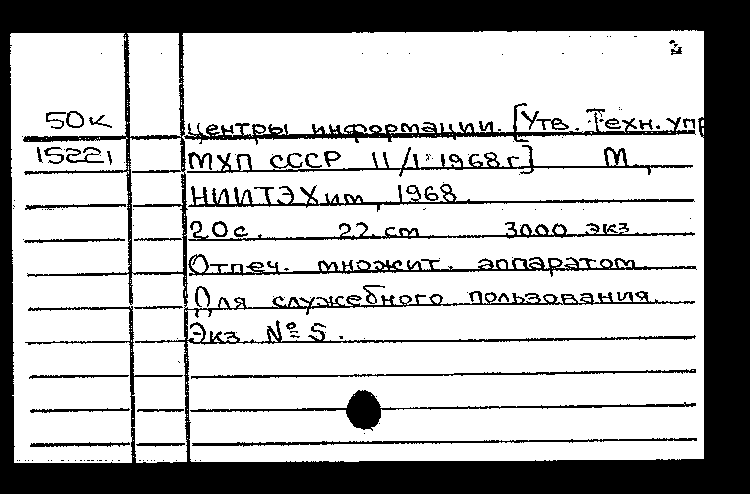 2
50к центры информации. [Утв. Техн. упр
15221 МХП СССР 11/I-1968г.] М.,
НИИТЭХим, 1968.
20с. 22 cm 3000 экз.
Отпеч. множит. аппаратом.
Для служебного пользования.
Экз. № 5.